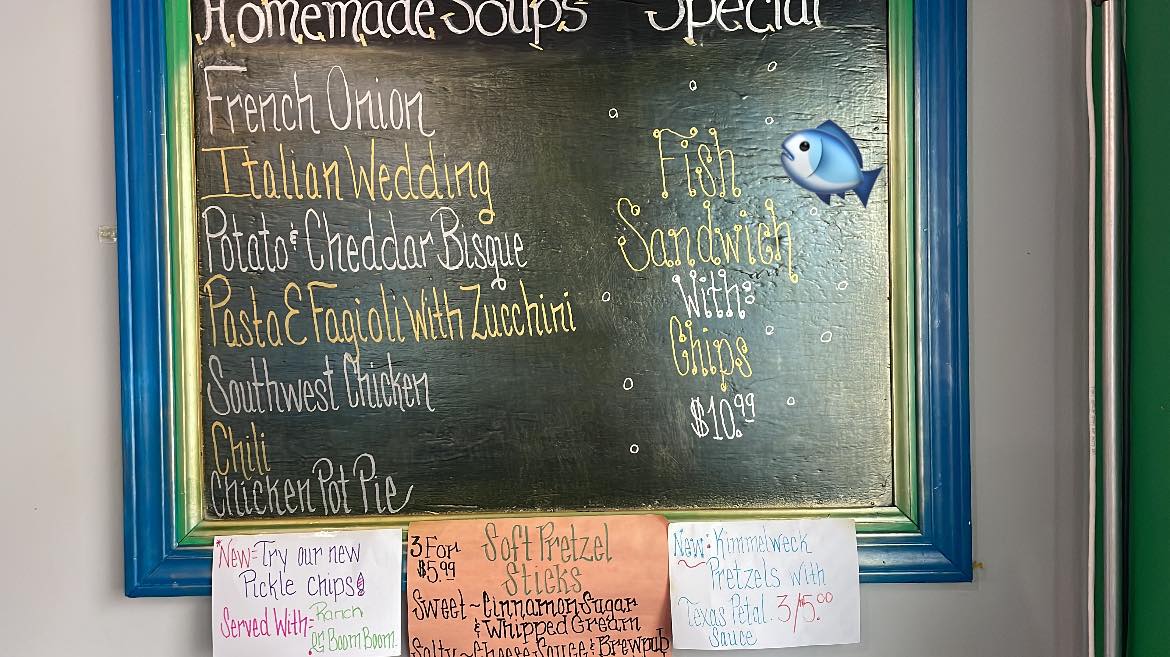 Homemade Soups
French Onion
Italian Wedding
Potato & Cheddar Bisque
Pasta E Fagioli With Zucchini
Southwest Chicken
Chili
Chicken Pot Pie
Special
Fish
Sandwich
With:
Chips
$10.99
New: Try our new
Pickle chips!
Served With: Ranch
or Boom Boom
3 For
$5.99
Soft Pretzel
Sticks
Sweet ~ Cinnamon Sugar
& Whipped Cream
Salty ~ Cheese Sauce & Brewpub
New: Kimmelweck
Pretzels with
Texas Petal 3/5.00
Sauce